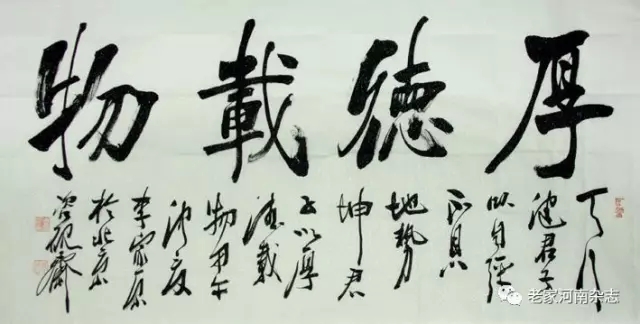 厚德載物
天行
健君子
以自强
不息
地勢
坤君
子以厚
德載
物甲午
李家原
於北京
老家河南杂志